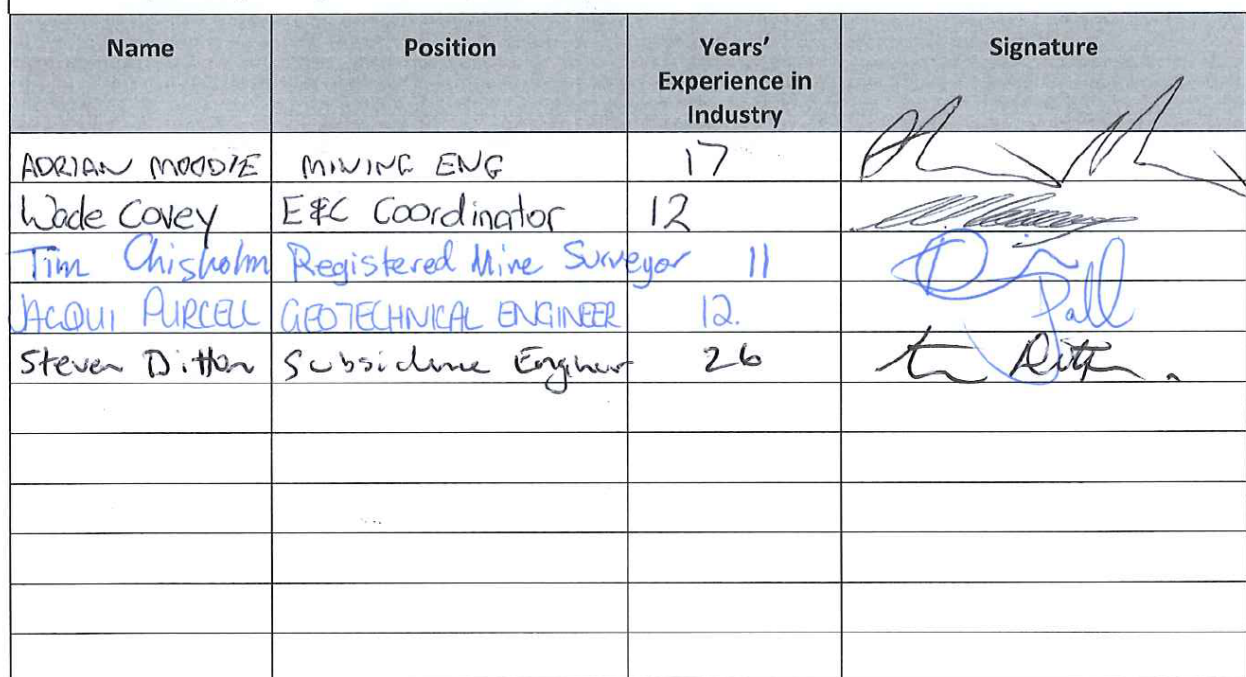 Name Position Years' Experience in Industry Signature
ADRIAN MOODIE MINING ENG 17
Wade Covey E&C Coordinator 12
Tim Chisholm Registered Mine Surveyor 11
JACQUI PURCELL GEOTECHNICAL ENGINEER 12.
Steven Ditton Subsidence Engineer 26